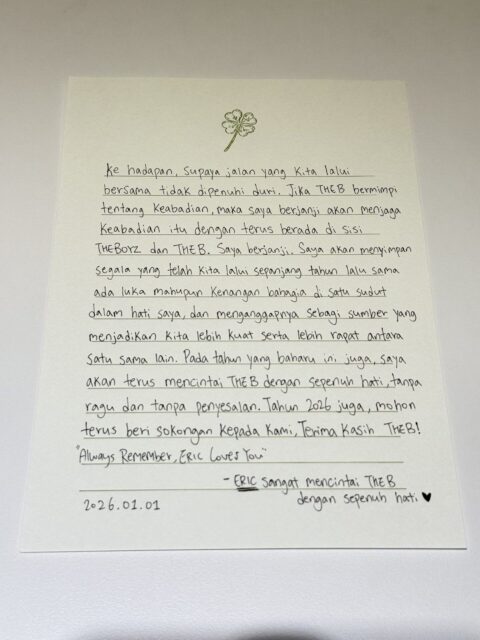 Ke hadapan, supaya jalan yang kita lalui
bersama tidak dipenuhi duri. Jika THEB bermimpi
tentang keabadian, maka saya berjanji akan menjaga
keabadian itu dengan terus berada di sisi
THEBOYZ dan THEB. Saya berjanji. Saya akan menyimpan
segala yang telah kita lalui sepanjang tahun lalu sama
ada luka mahupun kenangan bahagia di satu sudut
dalam hati saya, dan menganggapnya sebagi sumber yang
menjadikan kita lebih kuat serta lebih rapat antara
satu sama lain. Pada tahun yang baharu ini juga, saya
akan terus mencintai THEB dengan sepenuh hati, tanpa
ragu dan tanpa penyesalan. Tahun 2026 juga, mohon
terus beri sokongan kepada kami, Terima kasih THEB!
"Always Remember, ERIC Loves You"
- ERIC sangat mencintai THEB
dengan sepenuh hati ♥
2026.01.01